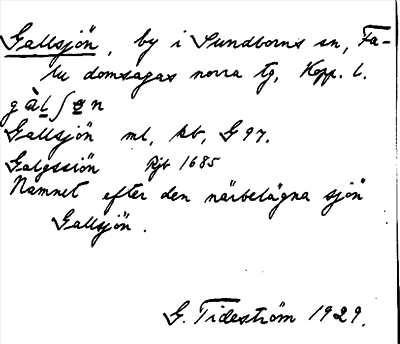 Gallsjön, by i Sundborns sn, Fa-
lu domsagas norra tg, Kopp. l.
gàlʃɐn
Gallsjön ml, kb, G 97.
Galgssiön Rjb 1685
Namnet efter den närbelägna sjön
Gallsjön.
G. Tideström 1929.